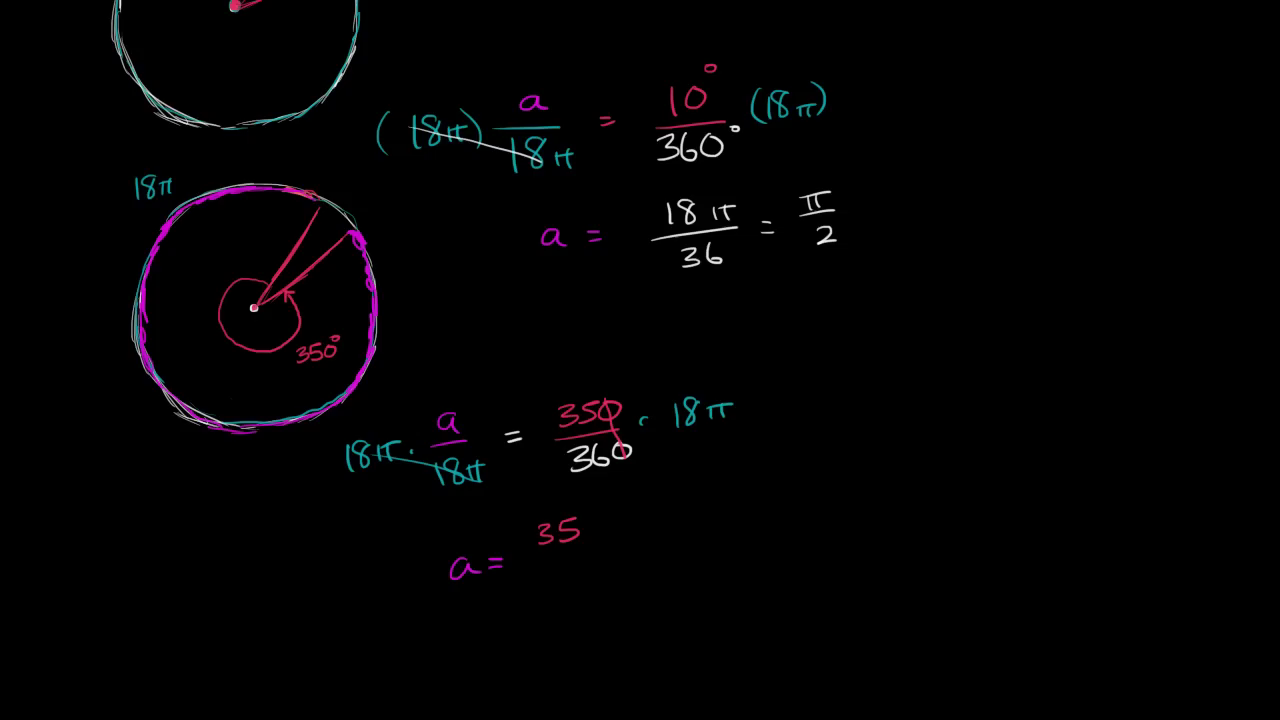 (18π) a/18π = 10°/360° (18π)
18π
a = 18π/36 = π/2
350°
18π · a/18π = 350/360 · 18π
a = 35